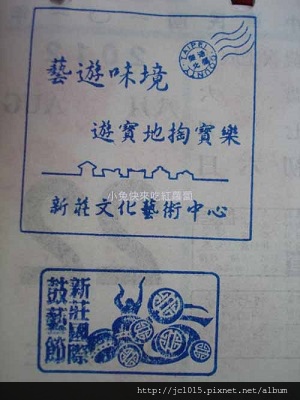 藝遊味境
遊寶地掏寶樂
新莊文化藝術中心
小兔快來吃紅蘿蔔
新莊國際
鼓藝節
TAIPEI
COUNTY
2012
AUG
http://jc1015.pixnet.net/album